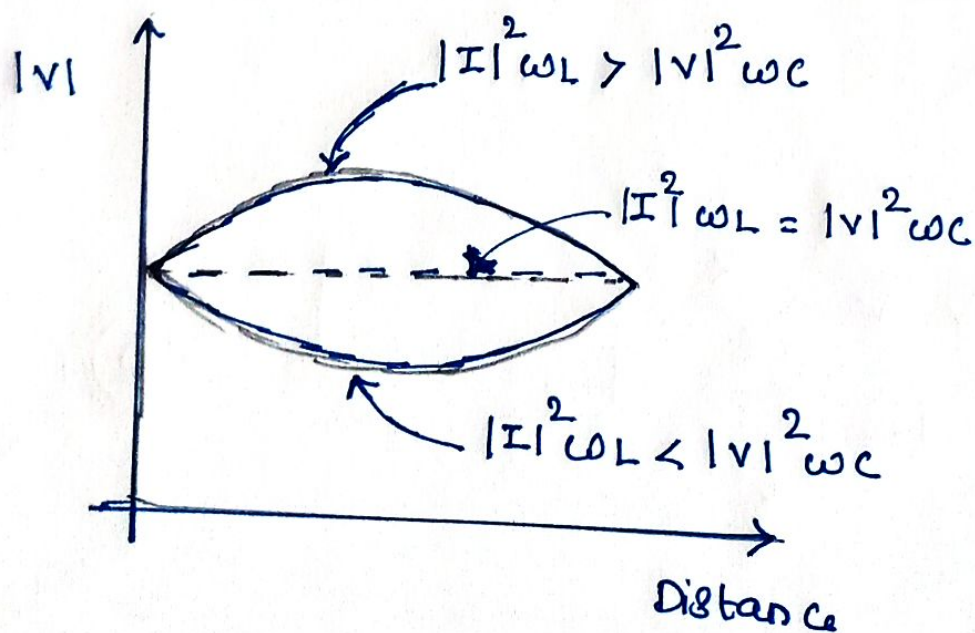 |V|
|I|²ωL > |V|²ωC
|I²| ωL = |V|²ωC
|I|²ωL < |V|²ωC
Distance